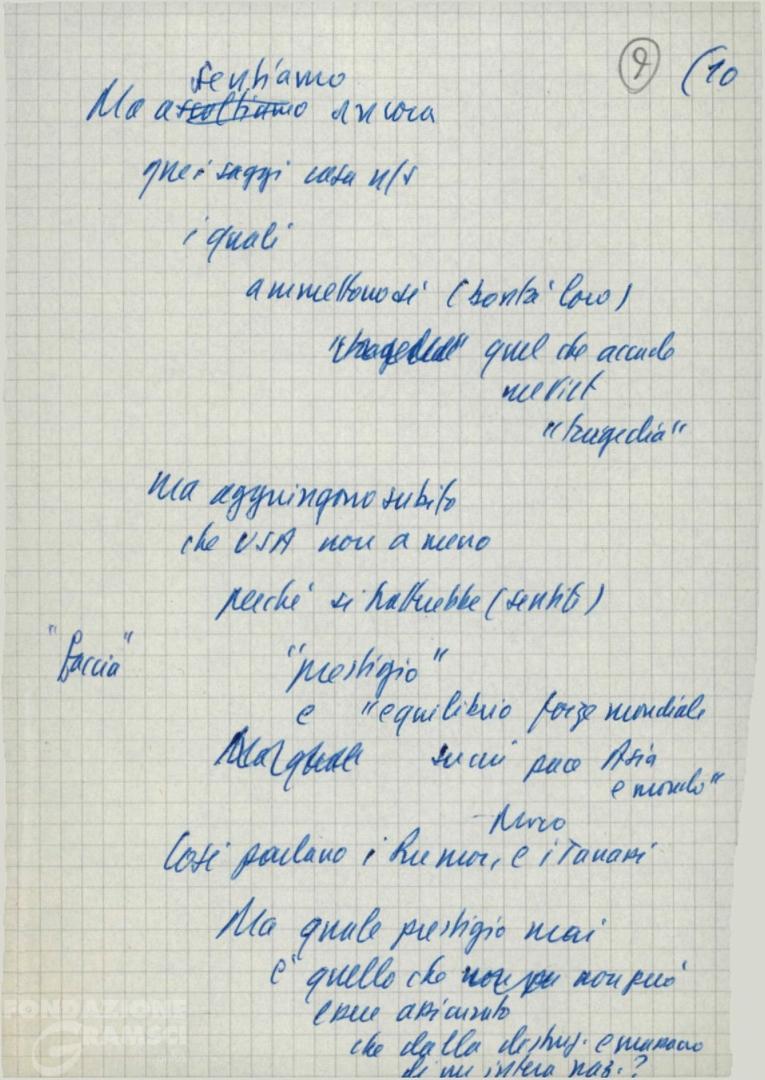 9 (10
sentiamo
Ma ascoltiamo ancora
quei saggi casa n/s
i quali
ammettono sì (bontà loro)
"tragedia" quel che accade
nel Viet
"tragedia"
ma aggiungono subito
che USA non a meno
perché si tratterebbe (sentite)
"Faccia"
"prestigio"
e "equilibrio forze mondiale
su cui pace Asia
e mondo"
Moro
Così parlano i Rumor, e i Tanassi
Ma quale prestigio mai
è quello che non può
essere assicurato
che dalla distruz. e massacro
di un intera naz.?
FONDAZIONE
GRAMSCI